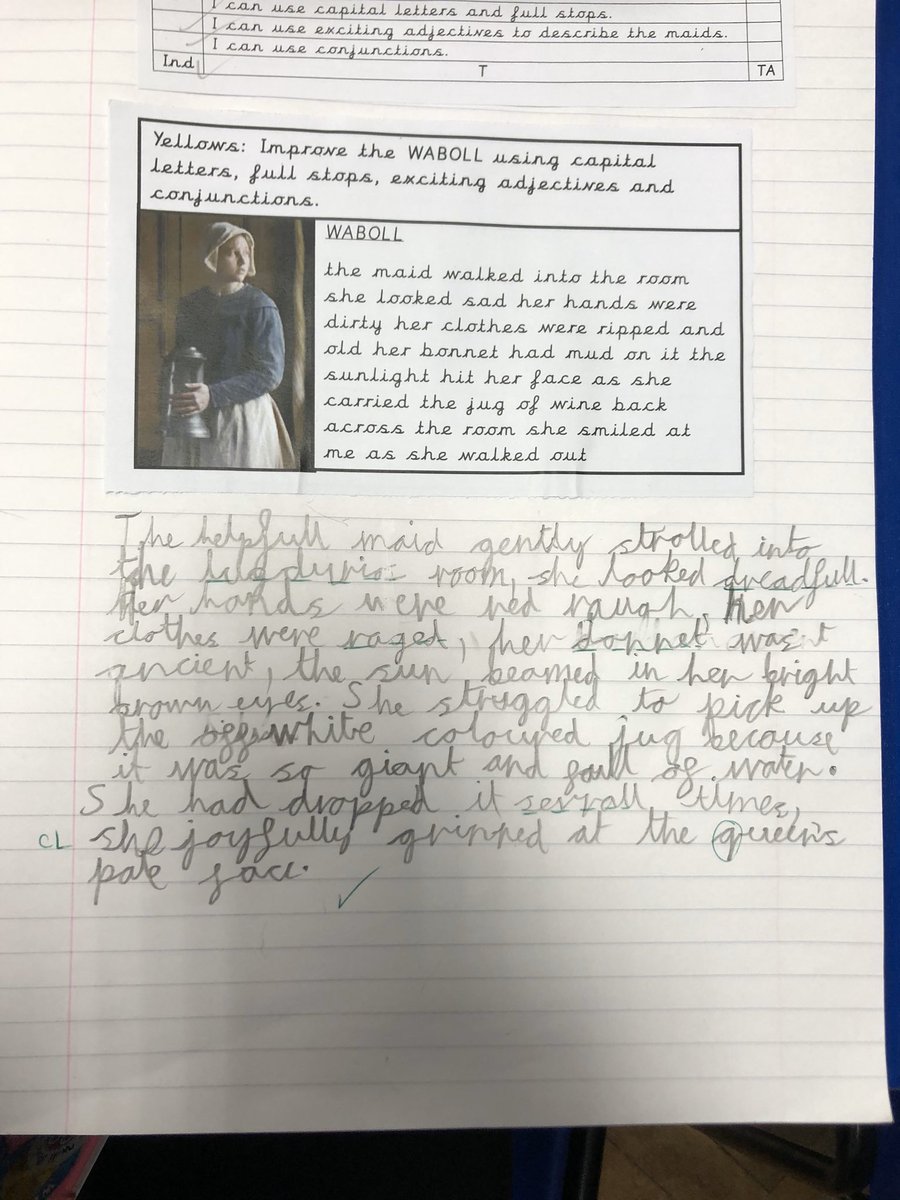 I can use capital letters and full stops.
I can use exciting adjectives to describe the maids.
I can use conjunctions.
Ind T TA
Yellows: Improve the WABOLL using capital
letters, full stops, exciting adjectives and
conjunctions.
WABOLL
the maid walked into the room
she looked sad her hands were
dirty her clothes were ripped and
old her bonnet had mud on it the
sunlight hit her face as she
carried the jug of wine back
across the room she smiled at
me as she walked out
The helpfull maid gently strolled into
the room, she looked dreadfull.
Her hands were red raugh, Her
clothes were raged, her bonnet was
ancient, the sun beamed in her bright
brown eyes. She struggled to pick up
the white coloured jug because
it was so giant and full of water.
She had dropped it serrall times,
CL she joyfully grinned at the queen's
pale face.